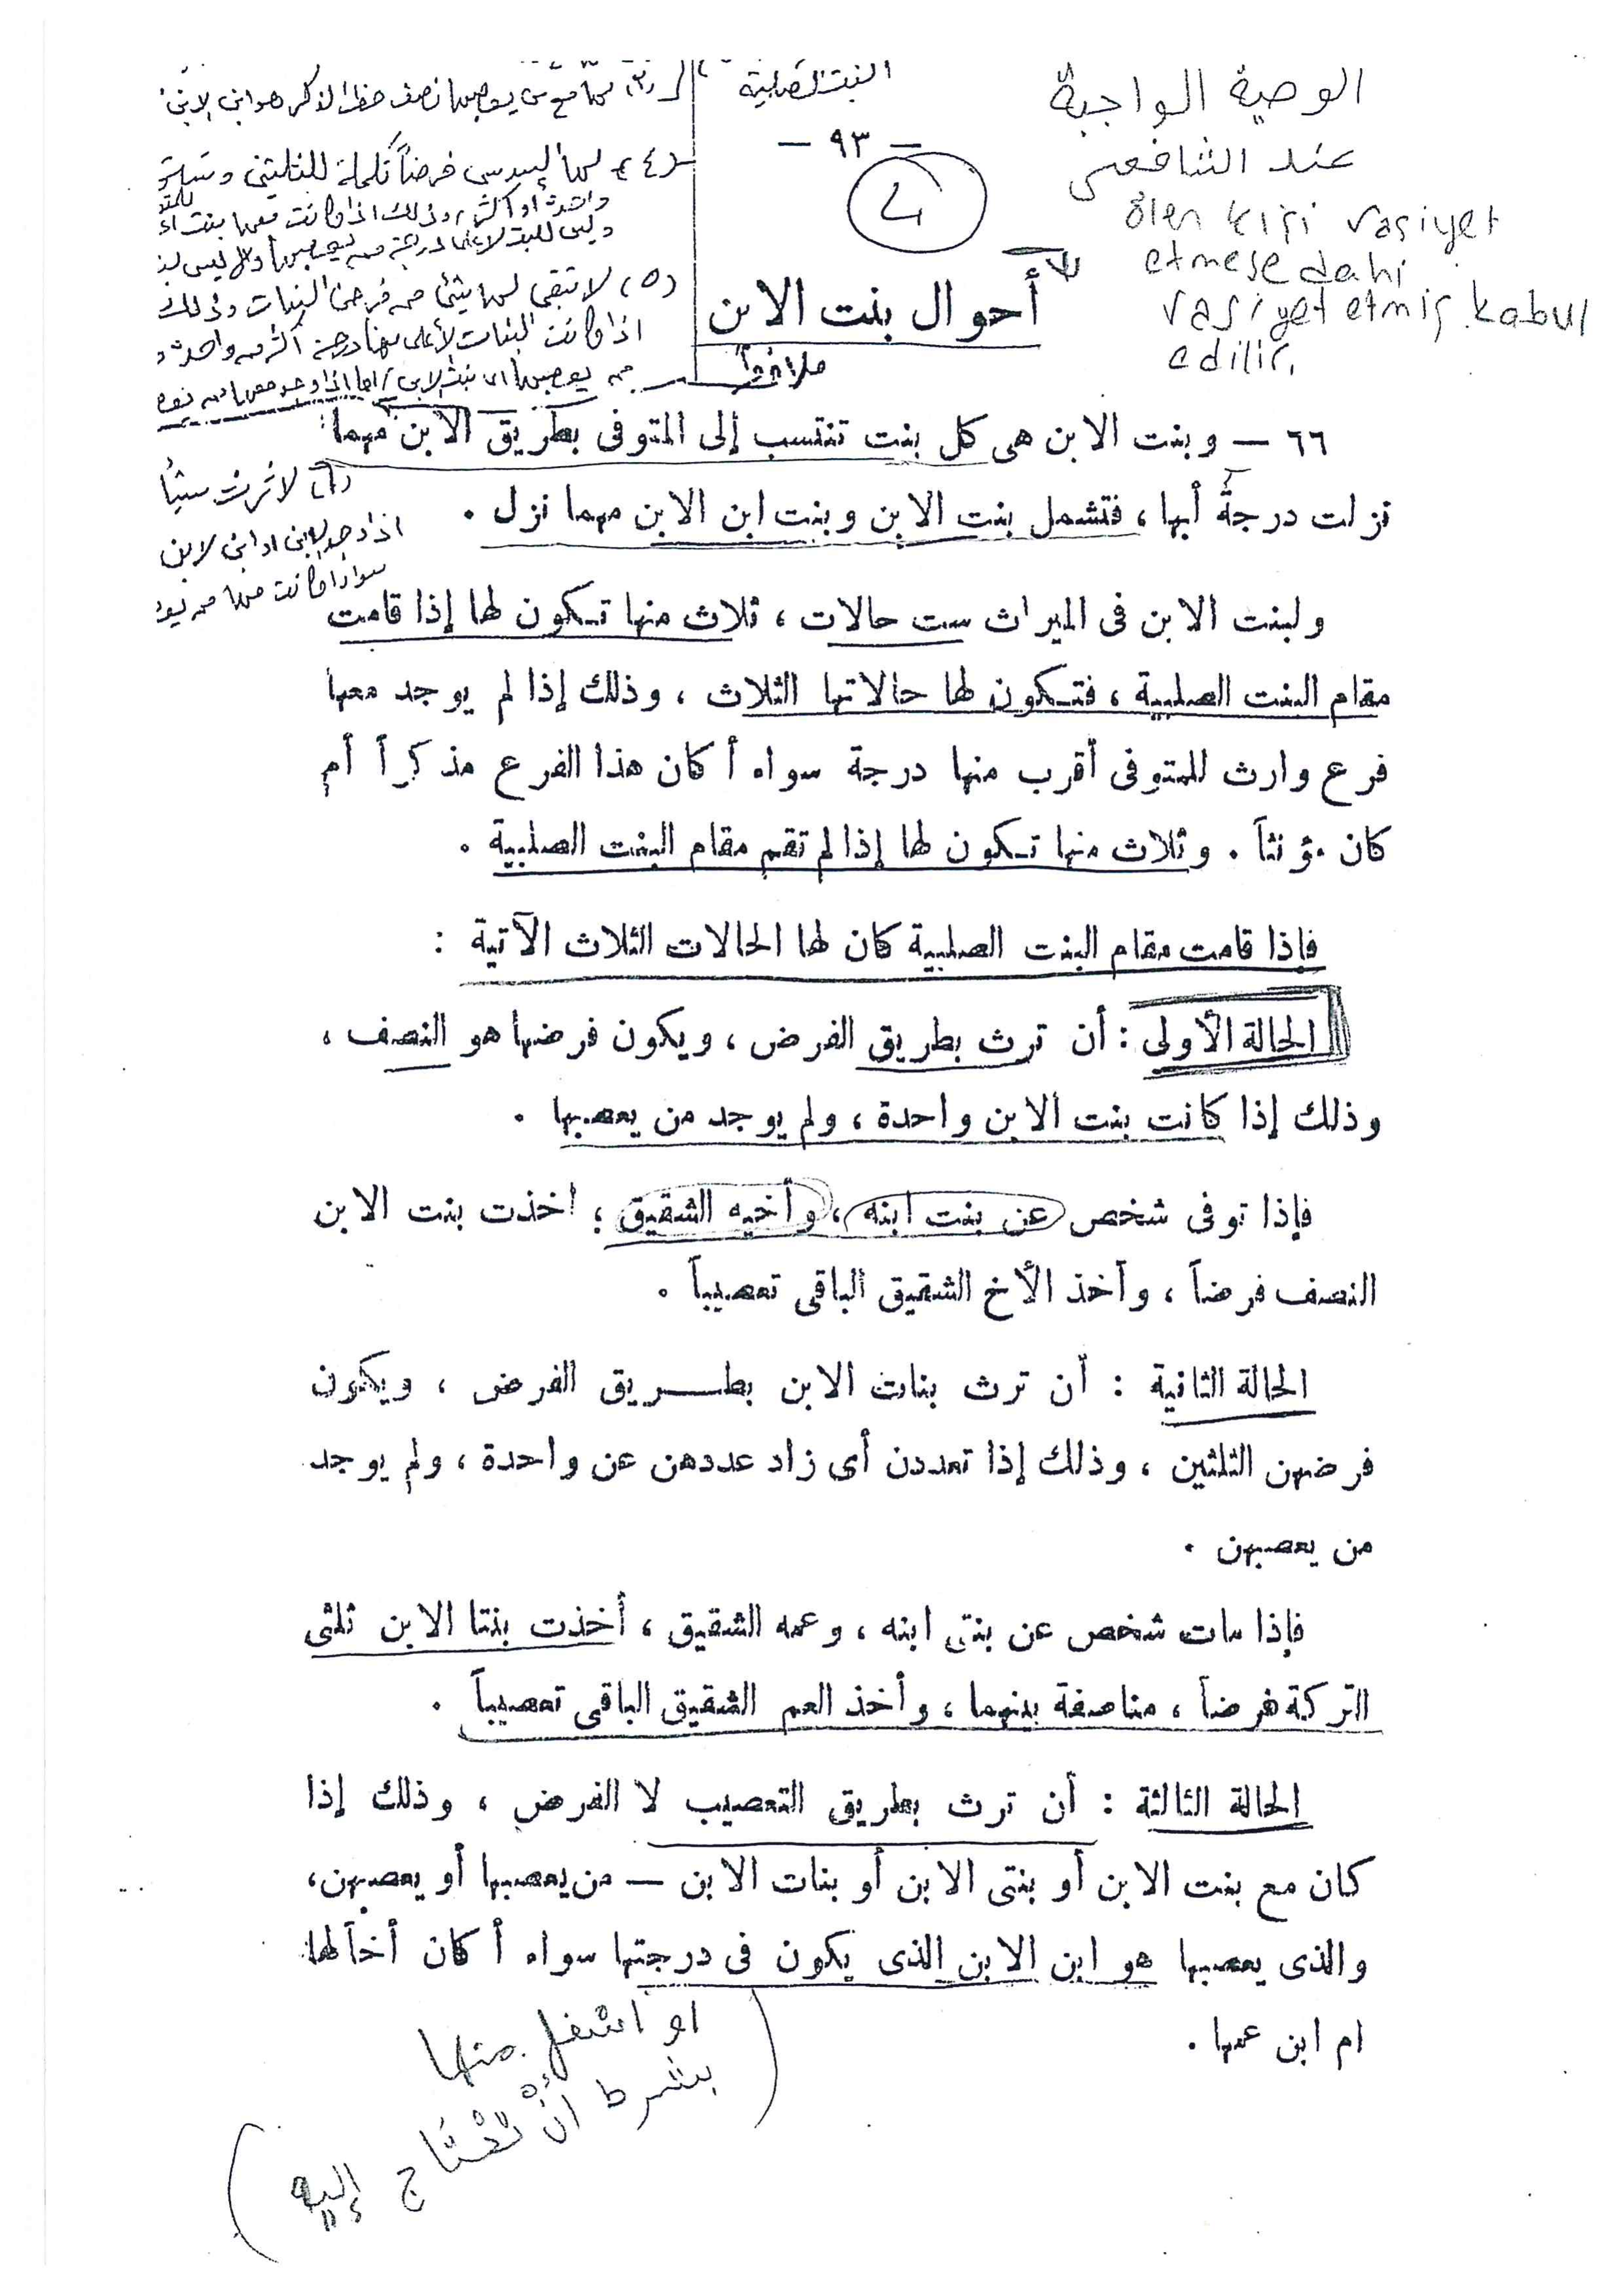 البنت الصلبية
— ٩٣ —
الوصية الواجبة
عند الشافعى
ölen kişi vasiyet
etmese dahi
vasiyet etmiş kabul
edilir.
(٤) لها السدس فرضاً تكملة للثلثين
(٥) لا تبقى لها شئ من فرض البنات وذلك
اذا كانت البنات لأعلى منها درجة أكثر من واحدة
(٦) لا ترث شيئاً
أحوال بنت الابن
٦٦ — وبنت الابن هى كل بنت تنتسب إلى المتوفى بطريق الابن مهما
نزلت درجة أبها ، فتشمل بنت الابن وبنت ابن الابن مهما نزل .
ولبنت الابن فى الميراث ست حالات ، ثلاث منها تكون لها إذا قامت
مقام البنت الصلبية ، فتكون لها حالاتها الثلاث ، وذلك إذا لم يوجد معها
فرع وارث للمتوفى أقرب منها درجة سواء أكان هذا الفرع مذكراً أم
كان مؤنثاً . وثلاث منها تكون لها إذا لم تقم مقام البنت الصلبية .
فإذا قامت مقام البنت الصلبية كان لها الحالات الثلاث الآتية :
الحالة الأولى : أن ترث بطريق الفرض ، ويكون فرضها هو النصف ،
وذلك إذا كانت بنت الابن واحدة ، ولم يوجد من يعصبها .
فإذا توفى شخص عن بنت ابنه ، وأخيه الشقيق ؛ اخذت بنت الابن
النصف فرضاً ، وأخذ الأخ الشقيق الباقى تعصيباً .
الحالة الثانية : أن ترث بنات الابن بطريق الفرض ، ويكون
فرضهن الثلثين ، وذلك إذا تعددن أى زاد عددهن عن واحدة ، ولم يوجد
من يعصبهن .
فإذا مات شخص عن بنتى ابنه ، وعمه الشقيق ، أخذت بنتا الابن ثلثى
التركة فرضاً ، مناصفة بينهما ، وأخذ العم الشقيق الباقى تعصيباً .
الحالة الثالثة : أن ترث بطريق التعصيب لا الفرض ، وذلك إذا
كان مع بنت الابن أو بنتى الابن أو بنات الابن — من يعصبها أو يعصبهن،
والذى يعصبها هو ابن الابن الذى يكون فى درجتها سواء أكان أخاً لها
ام ابن عمها .
(او اسفل منها
بشرط أنْ تَحْتَاج إليه)